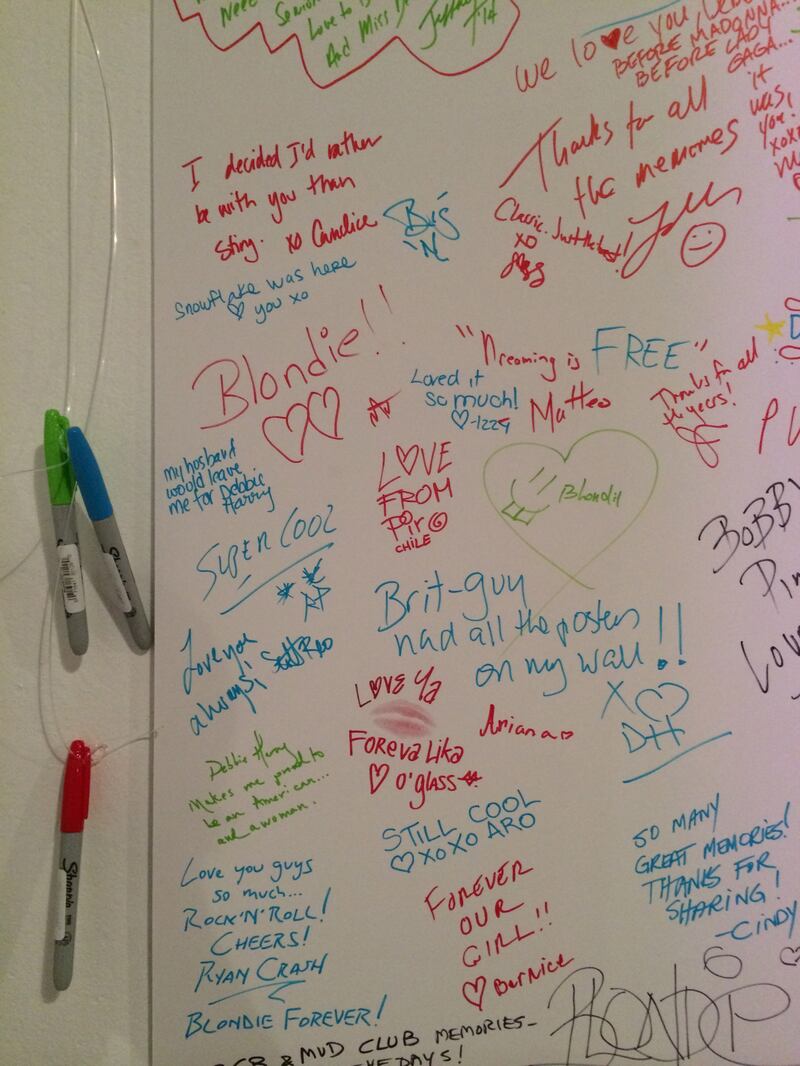 Need
Senior
Love to
And Miss
We love you,
BEFORE MADONNA...
BEFORE LADY
GAGA...
it
was
you.
xoxo
I decided I'd rather
be with you than
Sting. xo Candice
Big
'N
Thanks for all
the memories
Classic. Just the best!
XO
Snowflake was here
♡ you xo
Blondie!!
"Dreaming is FREE"
Loved it
so much!
♡-Izzy
Matteo
Thanks for all
the years!
my husband
would leave
me for Debbie
Harry
LOVE
FROM
Piro
CHILE
Blondie
SUPER COOL
BOBBY
Brit-guy
had all the posters
on my wall!!
X ♡
DH
Love you
always!
LOVE Ya
FOREVA LIKA
♡ O'glass
Ariana
Debbie Harry
Makes me proud to
be an American...
and a woman.
STILL COOL
♡ XOXO ARO
SO MANY
GREAT MEMORIES!
THANKS FOR
SHARING!
-CINDY
Love you guys
so much...
ROCK'N'ROLL!
CHEERS!
RYAN CRASH
BLONDIE FOREVER!
FOREVER
OUR
GIRL!!
♡ Bernice
BLONDIE
& MUD CLUB MEMORIES-
DAYS!
Sharpie